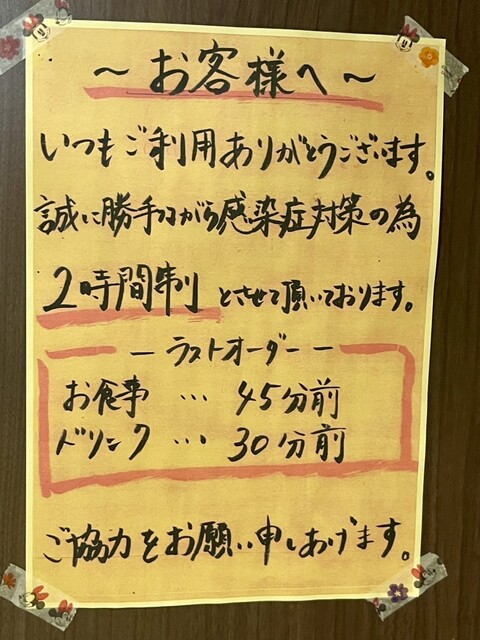 ～お客様へ～
いつもご利用ありがとうございます。
誠に勝手ながら感染症対策の為
2時間制とさせて頂いております。
ーラストオーダーー
お食事…45分前
ドリンク…30分前
ご協力をお願い申しあげます。